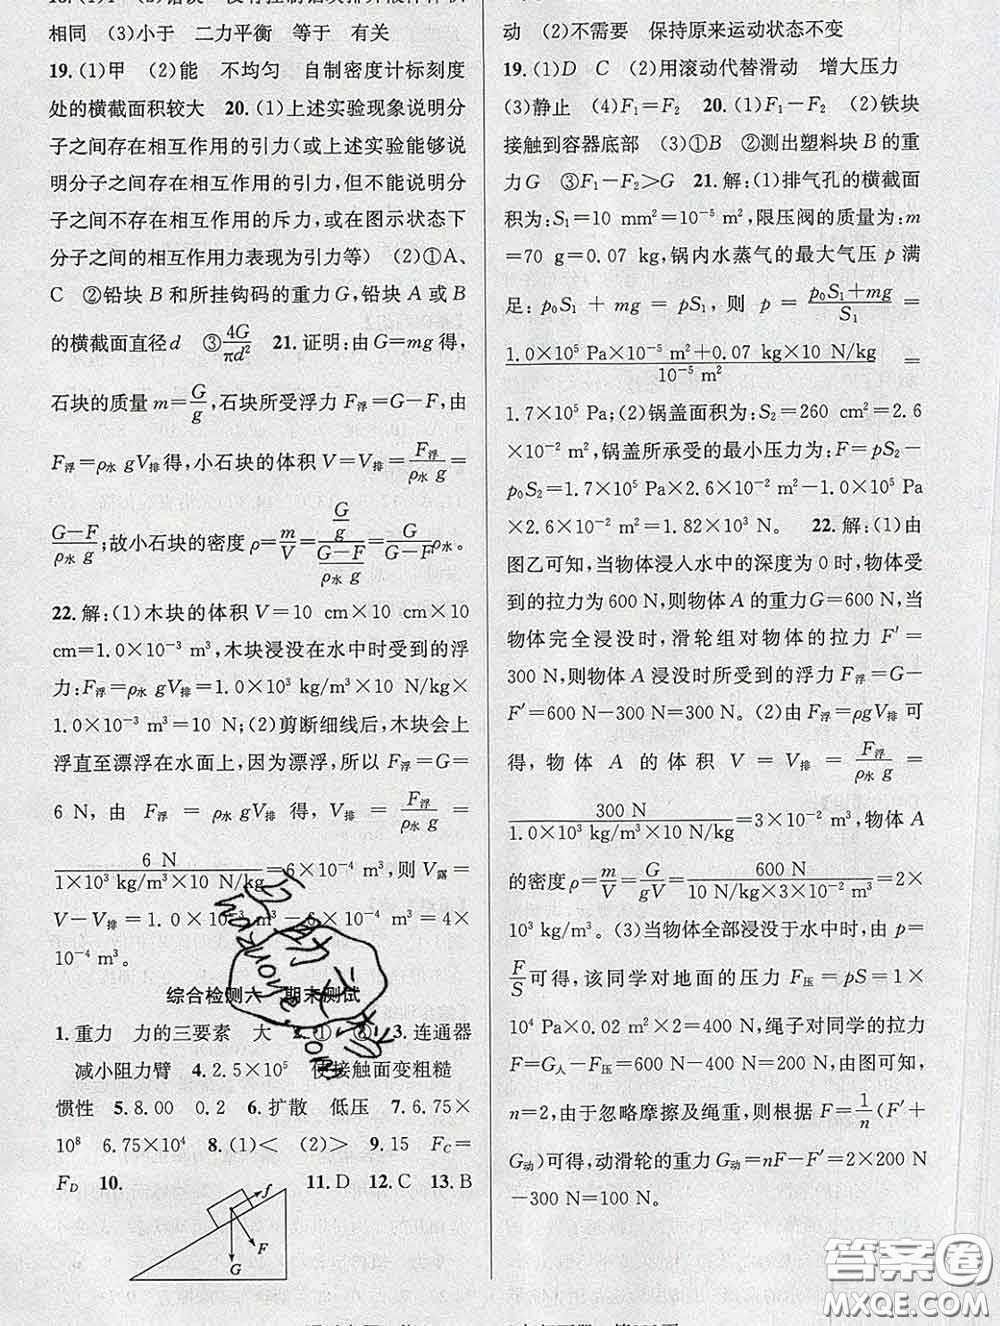 相同　(3)小于　二力平衡　等于　有关
19.(1)甲　(2)能　不均匀　自制密度计标刻度
处的横截面积较大　20.(1)上述实验现象说明分
子之间存在相互作用的引力(或上述实验能够说
明分子之间存在相互作用的引力,但不能说明分
子之间不存在相互作用的斥力,或在图示状态下
分子之间的相互作用力表现为引力等)　(2)①A、
C　②铅块 B 和所挂钩码的重力 G,铅块 A 或 B
的横截面直径 d　③4G/πd²　21.证明:由 G=mg 得,
石块的质量 m=G/g,石块所受浮力 F浮=G-F,由
F浮=ρ水 gV排 得,小石块的体积 V=V排=F浮/(ρ水 g)=
(G-F)/(ρ水 g);故小石块的密度 ρ=m/V=(G/g)/((G-F)/(ρ水 g))=G/(G-F)ρ水。
22.解:(1)木块的体积 V=10 cm×10 cm×10
cm=1.0×10⁻³ m³,木块浸没在水中时受到的浮
力:F浮=ρ水 gV排=1.0×10³ kg/m³×10 N/kg×
1.0×10⁻³ m³=10 N;(2)剪断细线后,木块会上
浮直至漂浮在水面上,因为漂浮,所以 F浮=G=
6 N,由 F浮=ρ水 gV排 得,V排=F浮/(ρ水 g)=
6 N/(1×10³ kg/m³×10 N/kg)=6×10⁻⁴ m³,则 V露=
V-V排=1.0×10⁻³ m³-6×10⁻⁴ m³=4×
10⁻⁴ m³。
综合检测六　期末测试
1.重力　力的三要素　大　2.①　②　3.连通器
减小阻力臂　4.2.5×10⁵　使接触面变粗糙
惯性　5.8.00　0.2　6.扩散　低压　7.6.75×
10⁸　6.75×10⁴　8.(1)<　(2)>　9.15　F_C=
F_D　10.　11.D　12.C　13.B
f
F
G
动　(2)不需要　保持原来运动状态不变
19.(1)D　C　(2)用滚动代替滑动　增大压力
(3)静止　(4)F₁=F₂　20.(1)F₁-F₂　(2)铁块
接触到容器底部　(3)①B　②测出塑料块 B 的重
力 G　③F₁-F₂>G　21.解:(1)排气孔的横截面
积为:S₁=10 mm²=10⁻⁵ m²,限压阀的质量为:m
=70 g=0.07 kg,锅内水蒸气的最大气压 p 满
足:p₀S₁+mg=pS₁,则 p=(p₀S₁+mg)/S₁=
(1.0×10⁵ Pa×10⁻⁵ m²+0.07 kg×10 N/kg)/10⁻⁵ m²=
1.7×10⁵ Pa;(2)锅盖面积为:S₂=260 cm²=2.6
×10⁻² m²,锅盖所承受的最小压力为:F=pS₂-
p₀S₂=1.7×10⁵ Pa×2.6×10⁻² m²-1.0×10⁵ Pa
×2.6×10⁻² m²=1.82×10³ N。　22.解:(1)由
图乙可知,当物体浸入水中的深度为 0 时,物体受
到的拉力为 600 N,则物体 A 的重力G=600 N,当
物体完全浸没时,滑轮组对物体的拉力 F′=
300 N,则物体 A 浸没时所受到的浮力 F浮=G-
F′=600 N-300 N=300 N。(2)由 F浮=ρgV排 可
得,物体 A 的体积 V=V排=F浮/(ρ水 g)=
300 N/(1.0×10³ kg/m³×10 N/kg)=3×10⁻² m³,物体 A
的密度 ρ=m/V=G/gV=600 N/(10 N/kg×3×10⁻² m³)=2×
10³ kg/m³。(3)当物体全部浸没于水中时,由 p=
F/S可得,该同学对地面的压力 F压=pS=1×
10⁴ Pa×0.02 m²×2=400 N,绳子对同学的拉力
F=G人-F压=600 N-400 N=200 N,由图可知,
n=2,由于忽略摩擦及绳重,则根据 F=1/n(F′+
G动)可得,动滑轮的重力 G动=nF-F′=2×200 N
-300 N=100 N。
答案圈
MXQE.COM